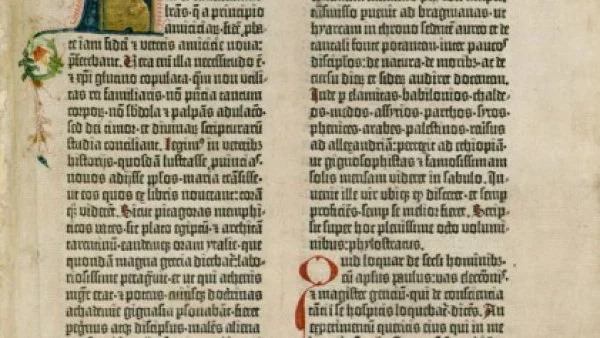 trās· q̄ a principio
amiciciar̄· fidē p̄ba
te iam fidei et veteris amicicie noua·
p̄ferebant. Uera eni illa necessitudo ē·
⁊ xp̄i glutino copulata· quā non vtili-
tas rei familiaris· nō p̄ntia tantum
corpor̄· nō sb̄dola ⁊ palpās adulacō·
sed dei timor· et diuinar̄ scripturarū
studia conciliant. Legim⁹ in veterib⁾
historijs· quosdā lustrasse· puincias·
nouos adijsse p̄plos· maria trāsisse·
ut eos quos ex libris nouerant: corā
q̄₎ viderēt. Sicut pitagoras memphi-
ticos vates· sic plato egiptū· ⁊ architā
tarentinū· eandemq₎ oram ytalie· que
quondā magna grecia dicebat̄: labo-
riosissime peragrauit· et ut qui athenis
mgr̄ erat· ⁊ potens· cuiusq₎ doctrinas
achademie gignasia psonabāt· fieret
peginus atq₎ discipulus· malēs aliena
puenit ad bragmanas· ut
hyarcam in throno sedentē aureo et de
tantali fonte potantem· inter paucos
disciplos· de natura· de morib₎ ac de
cursu dieꝝ et sideꝝ audiret docentem.
Inde p elamitas· babilonios· chalde-
os· medos· assyrios· parthos· syros·
phenices· arabes· palestinos· reūsus
ad alexandriā: perrexit ad ethiopiā·
ut gignosophistas ⁊ famosissimam
solis mensam videret in sabulo. In-
uenit ille vir ubiq₎ qd̄ disceret· et semp
proficiēs· semp se melior fieret. Scrip-
sit super hoc plenissime octo volumi-
nibus: phylostratus.
Quid loquar de secl̄i hominib₎·
cū apl̄us paulus· vas electōnis·
⁊ magister gentiū· qui de consciencia
tāti ī se hospitis loquebat̄· dicēs. An
experimentū queritis eius qui in me